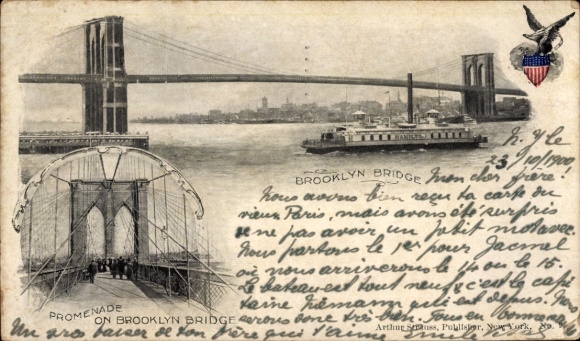 HAMILTON
BROOKLYN BRIDGE
N. Y le
23/10/1900
Mon cher frère!
Nous avons bien reçu ta carte du
vieux Paris, mais avons été surpris
de ne pas avoir un petit mot avec.
Nous partons le 1er pour Jacmel
où nous arriverons le 14 ou le 15.
Le bateau est tout neuf & c'est le capi
taine qui est depuis. Nous
serons donc très bien. Tous en bonne
Un gros baiser de ton frère qui t'aime Emile
PROMENADE
ON BROOKLYN BRIDGE
Arthur Strauss, Publisher, New York. No.